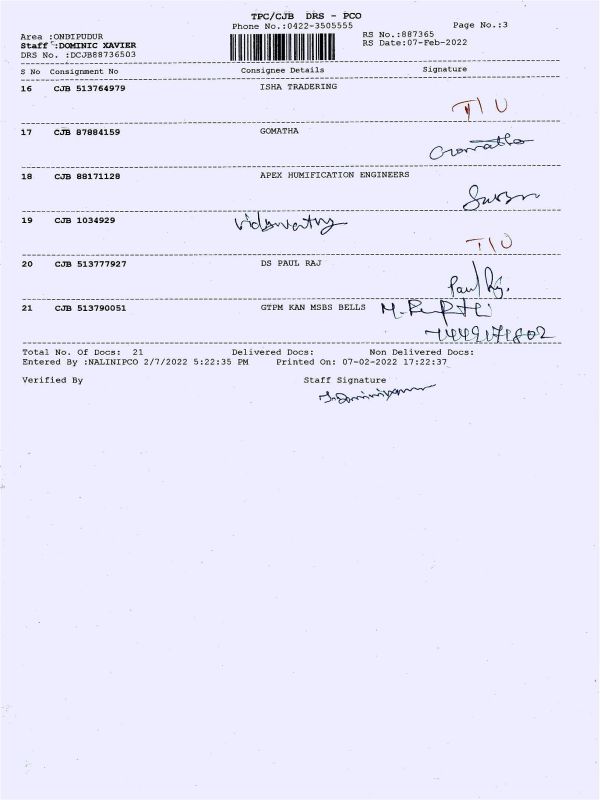 TPC/CJB DRS - PCO
Phone No.:0422-3505555 Page No.:3
Area :ONDIPUDUR RS No.:887365
Staff :DOMINIC XAVIER RS Date:07-Feb-2022
DRS No. :DCJB88736503
S No Consignment No Consignee Details Signature
16 CJB 513764979 ISHA TRADERING
T/U
17 CJB 87884159 GOMATHA
Gomatha
18 CJB 88171128 APEX HUMIFICATION ENGINEERS
19 CJB 1034929
T/U
20 CJB 513777927 DS PAUL RAJ
Paul Raj.
21 CJB 513790051 GTPM KAN MSBS BELLS
Total No. Of Docs: 21 Delivered Docs: Non Delivered Docs:
Entered By :NALINIPCO 2/7/2022 5:22:35 PM Printed On: 07-02-2022 17:22:37
Verified By Staff Signature